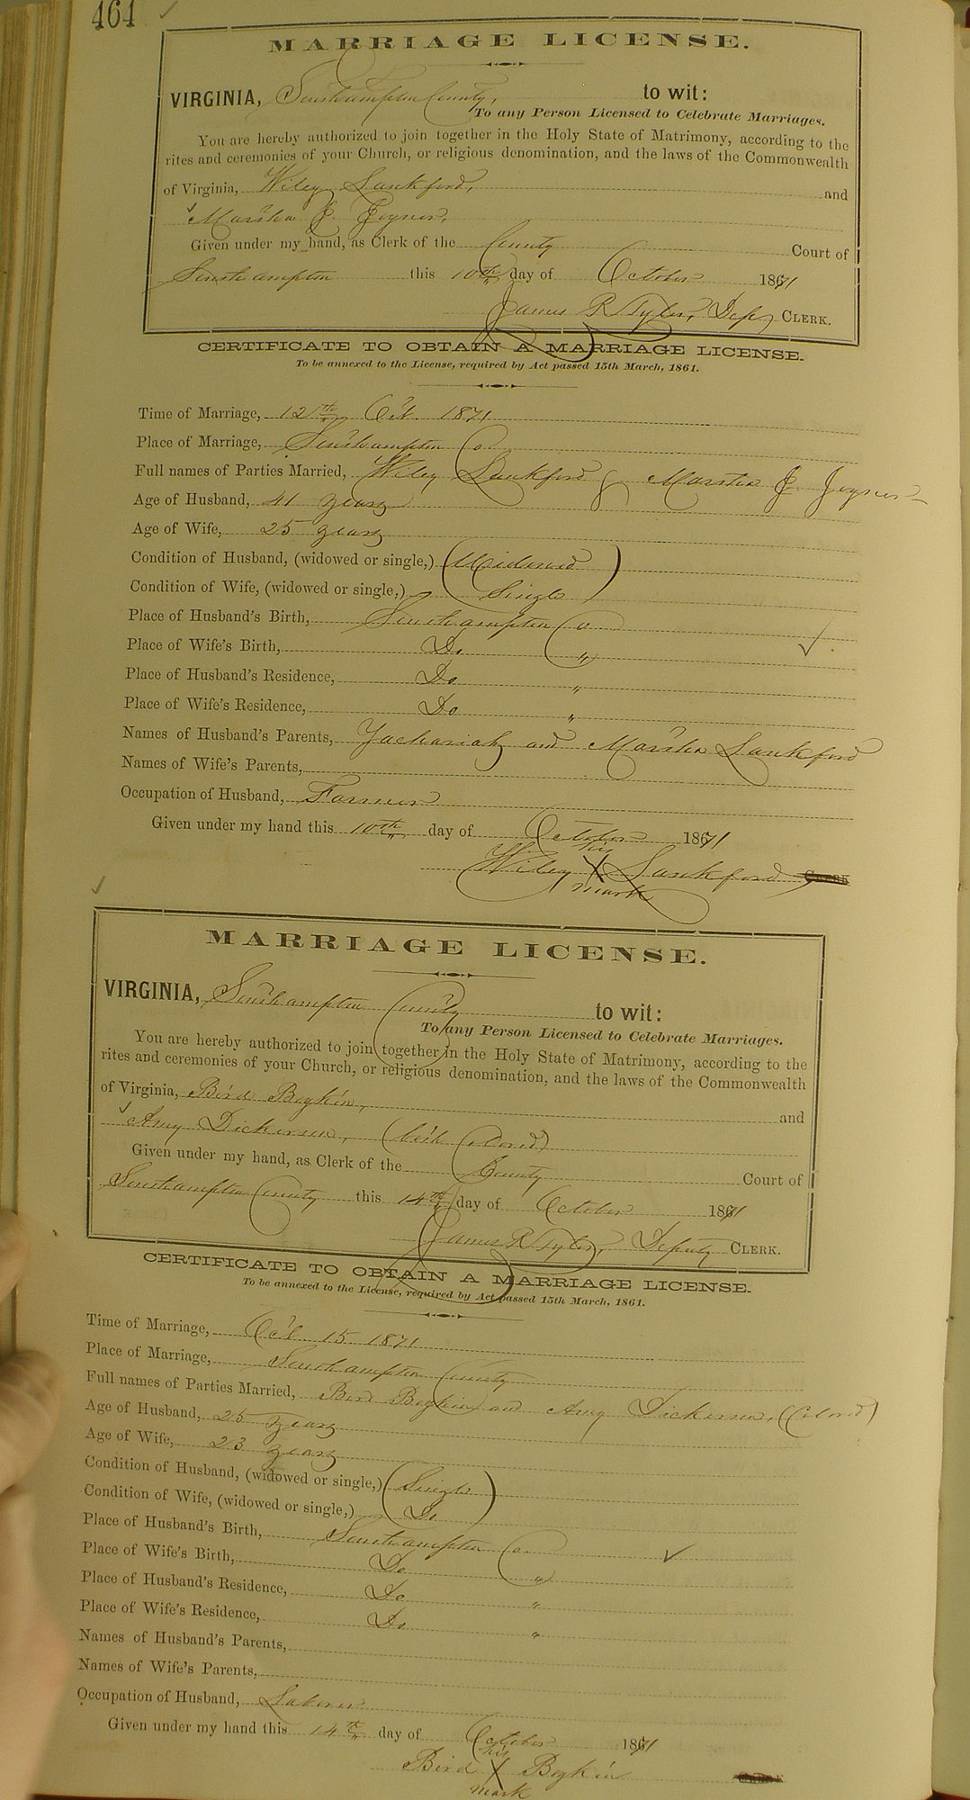 464
MARRIAGE LICENSE.
VIRGINIA, Southampton County, to wit:
To any Person Licensed to Celebrate Marriages.
You are hereby authorized to join together in the Holy State of Matrimony, according to the
rites and ceremonies of your Church, or religious denomination, and the laws of the Commonwealth
of Virginia, Wiley Lankford, and
Martha J. Joyner,
Given under my hand, as Clerk of the County Court of
Southampton this 10th day of October 1871
James R Tyler, Dep, CLERK.
CERTIFICATE TO OBTAIN A MARRIAGE LICENSE.
To be annexed to the License, required by Act passed 15th March, 1861.
Time of Marriage, 12th Oct. 1871
Place of Marriage, Southampton Co
Full names of Parties Married, Wiley Lankford & Martha J. Joyner
Age of Husband, 41 years
Age of Wife, 25 years
Condition of Husband, (widowed or single,) (Widowed)
Condition of Wife, (widowed or single,) Single
Place of Husband's Birth, Southampton Co
Place of Wife's Birth, Do "
Place of Husband's Residence, Do "
Place of Wife's Residence, Do "
Names of Husband's Parents, Zachariah and Martha Lankford
Names of Wife's Parents,
Occupation of Husband, Farmer
Given under my hand this 10th day of October 1871
his
Wiley X Lankford
mark
MARRIAGE LICENSE.
VIRGINIA, Southampton County to wit:
To any Person Licensed to Celebrate Marriages.
You are hereby authorized to join together in the Holy State of Matrimony, according to the
rites and ceremonies of your Church, or religious denomination, and the laws of the Commonwealth
of Virginia, Bird Boykin, and
Amy Dickerson, (both Colored)
Given under my hand, as Clerk of the County Court of
Southampton County this 14th day of October 1871
James R Tyler, Deputy CLERK.
CERTIFICATE TO OBTAIN A MARRIAGE LICENSE.
To be annexed to the License, required by Act passed 15th March, 1861.
Time of Marriage, Oct 15 1871
Place of Marriage, Southampton County
Full names of Parties Married, Bird Boykin and Amy Dickerson, (Colored)
Age of Husband, 25 years
Age of Wife, 23 years
Condition of Husband, (widowed or single,) (Single)
Condition of Wife, (widowed or single,) Do
Place of Husband's Birth, Southampton Co
Place of Wife's Birth, Do "
Place of Husband's Residence, Do "
Place of Wife's Residence, Do "
Names of Husband's Parents,
Names of Wife's Parents,
Occupation of Husband, Laborer
Given under my hand this 14th day of October 1871
his
Bird X Boykin
mark